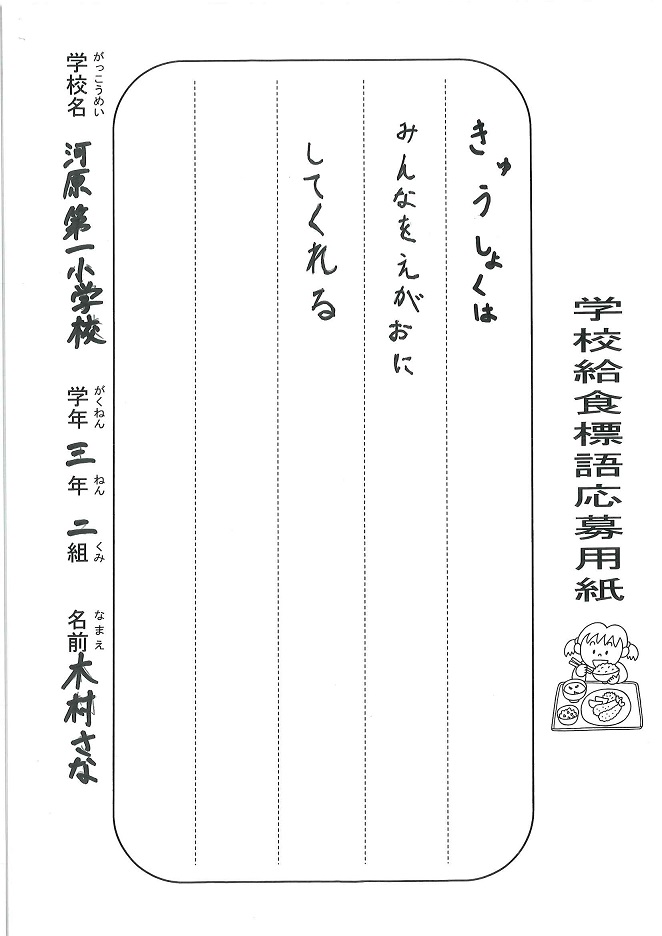 学校給食標語応募用紙
きゅうしょくは
みんなをえがおに
してくれる
がっこうめい
学校名 河原第一小学校
がくねん ねん くみ
学年 三年 二組
なまえ
名前 木村さな